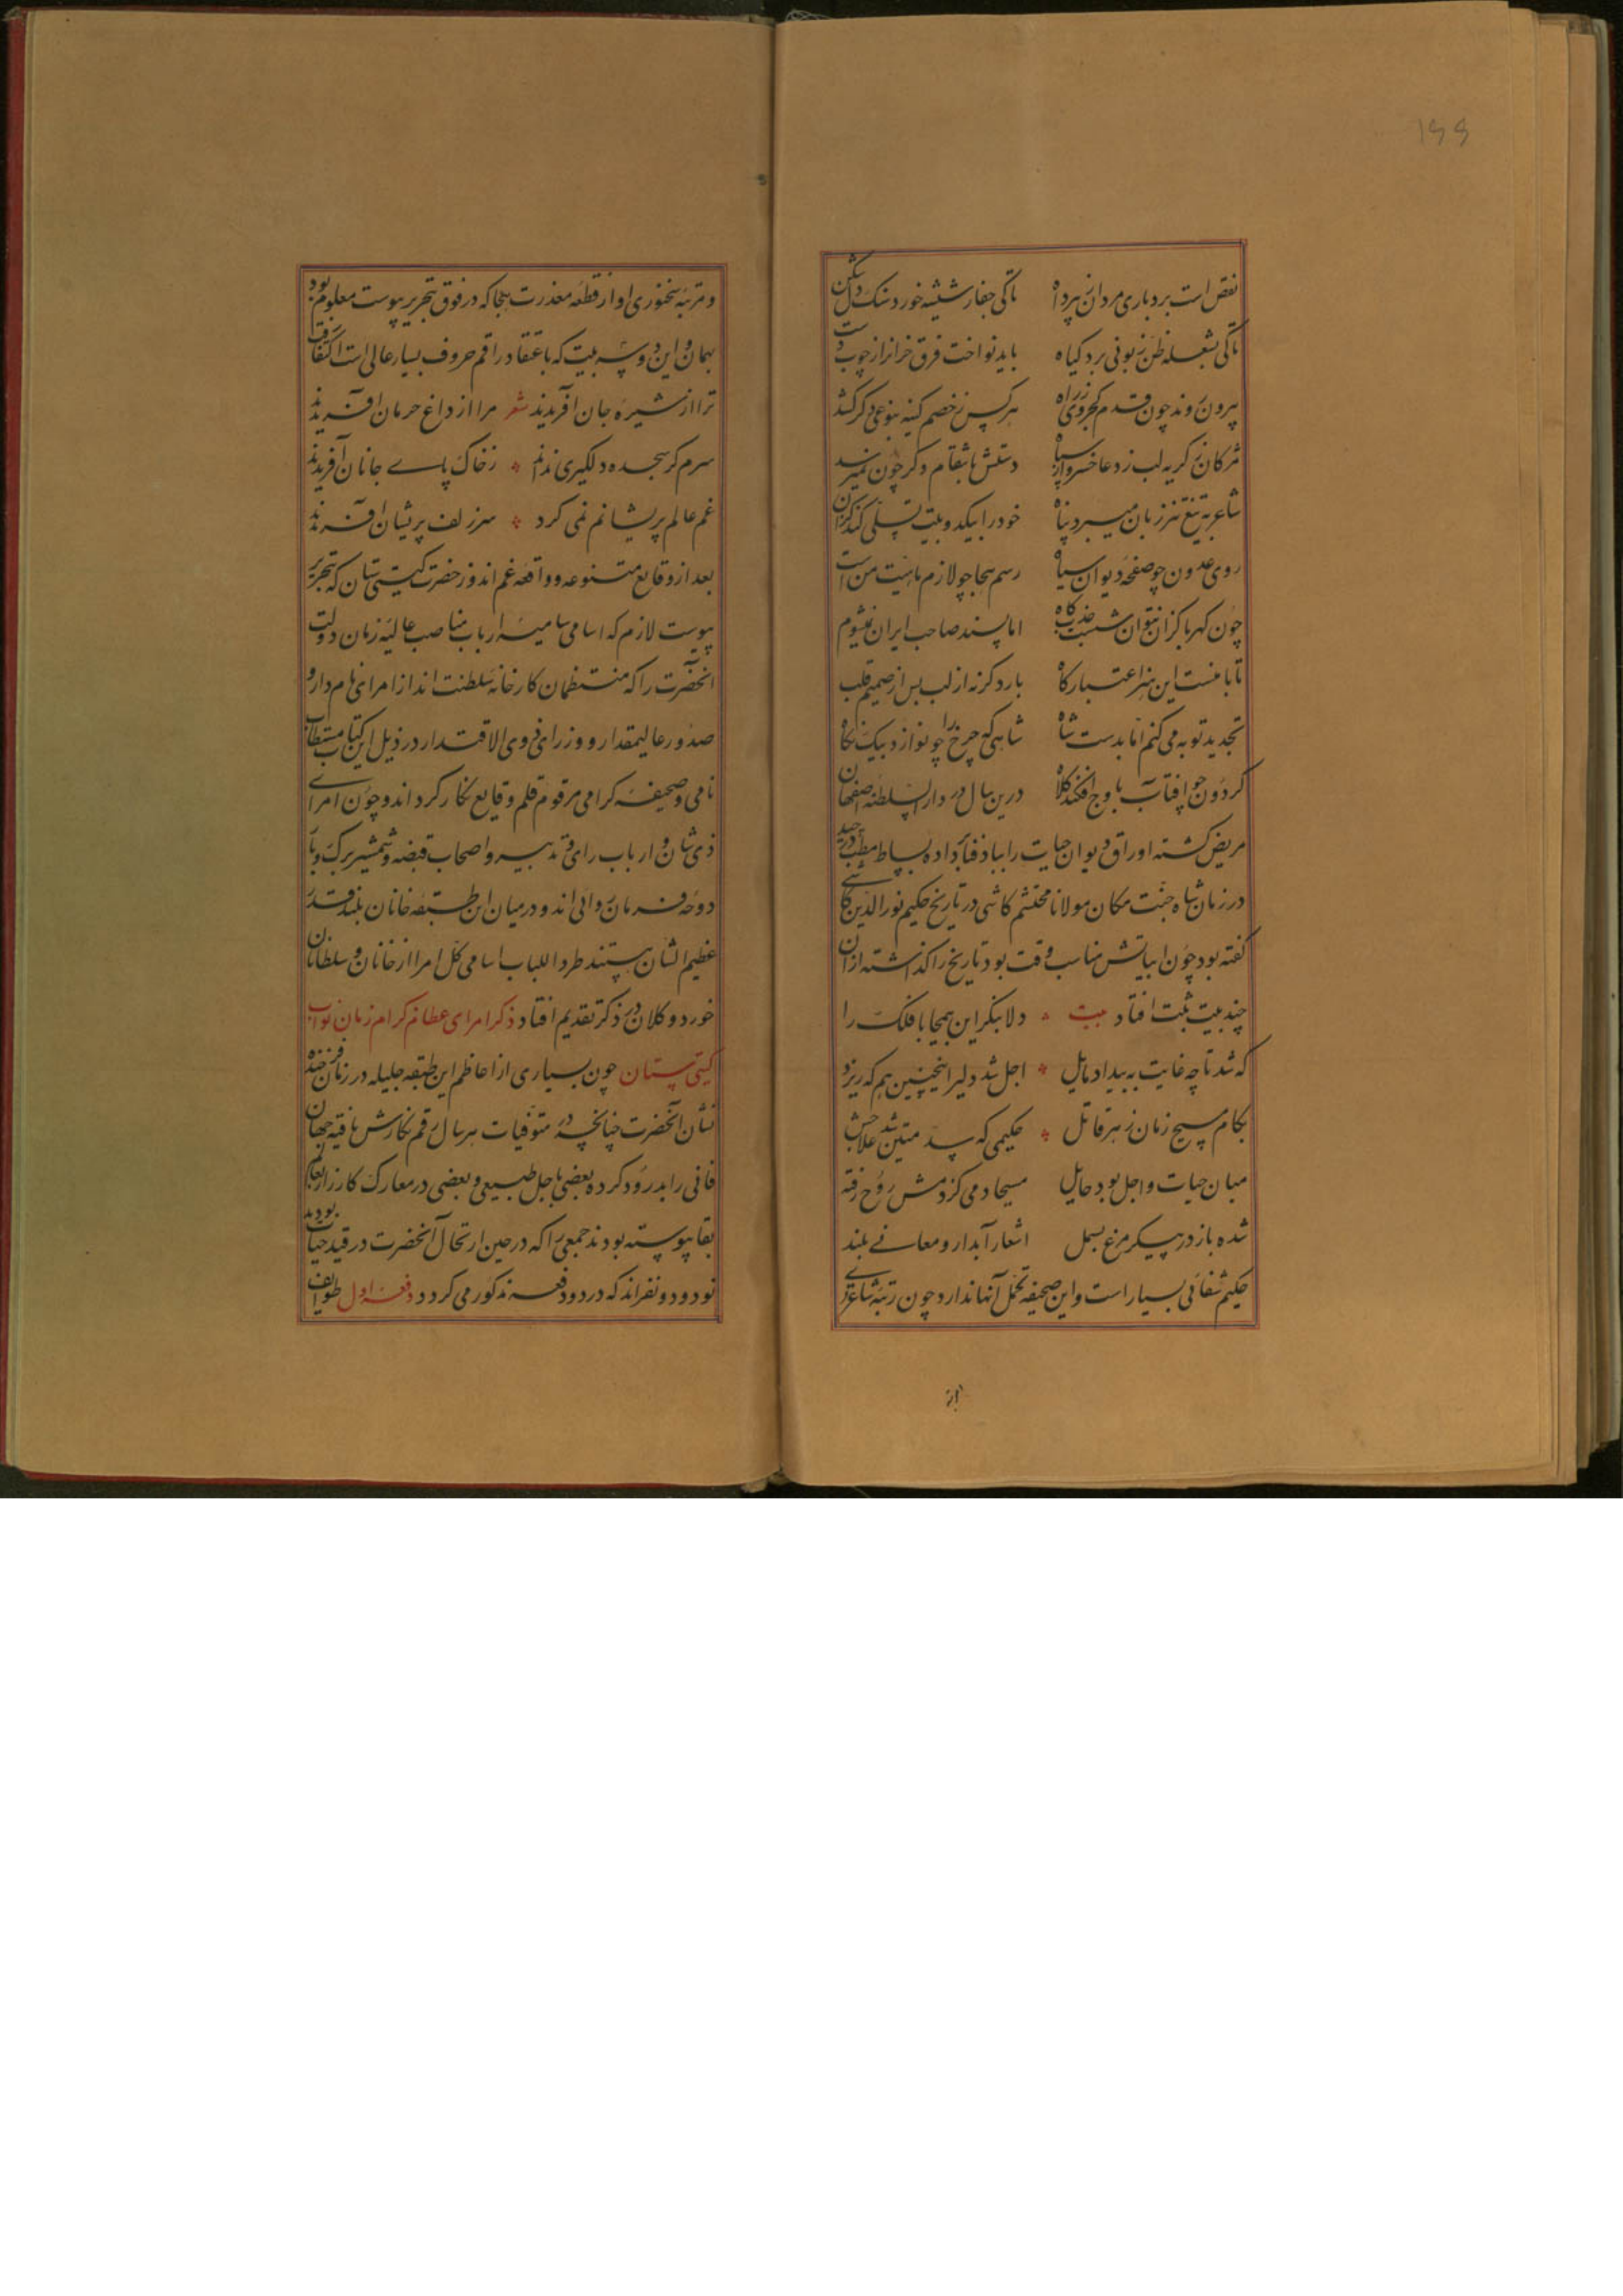 ۱۹۹
نقص است بردباری مردان نبرد اه تاکی جفا ز شیشه خورد سنک دل شکن
تاکی بشعله ظن زبونی برد کیاه باید نواخت فرق خرانرا ز چوب دست
بیرون روند چون قدم کجروی ز راه هرکس ز خصم کینه بنوعی دکر کشد
مژکان ز کریه لب ز دعا خسرو از سپاه دستش بانتقام دکر چون نمیرسد
شاعر به تیغ تیز زبان میبرد پناه خود را بیکدو بیت تسلی کند کزان
روی عدو چو صفحه دیوان سیاه رسم هجا چو لازم ماهیت من است
چون کهربا کزان نتوان شست جذب کاه اما پسند صاحب ایران نمیشوم
تا با منست این هنر اعتبار کاه بار دکر نه از لب بس از صمیم قلب
تجدید توبه می کنم اما بدست شاه شاهی که چرخ را چو نوازد بیک نکاه
کردون چو آفتاب باوج افکند کلاه درین سال در دار السلطنه اصفهان
مریض کشته اوراق دیوان حیات را بباد فنا داده بساط مطب در چید
در زمان شاه جنت مکان مولانا محتشم کاشی در تاریخ حکیم نورالدین کاشی
کفته بود چون ابیاتش مناسب وقت بود تاریخ را کذاشته از ان
چند بیت ثبت افتاد بیت دلا بنکر این بیمحابا فلک را
که شد تا چه غایت به بیداد مایل اجل شد دلیر اینچنین هم که ریزد
بکام مسیح زمان زهر قاتل حکیمی که سد متین شد علاجش
میان حیات و اجل بود حایل مسیحا دمی کز دمش روح رفته
شده باز در پیکر مرغ بسمل اشعار آبدار و معانی بلند
حکیم شفائی بسیار است و این صحیفه تحمل آنها ندارد چون رتبه شاعری
از
و مرتبه سخنوری او از قطعه معذرت هجا که در فوق بتحریر پیوست معلوم بود
بهمان و این دو سه بیت که باعتقاد راقم حروف بسیار عالی است اکتفا رفت
ترا از شیره جان آفریدند شعر مرا از داغ حرمان آفریدند
سرم کر سجده دلکیری نداند ز خاک پای جانان آفریدند
غم عالم پریشانم نمی کرد سر زلف پریشان آفریدند
بعد از وقایع متنوعه و واقعه غم اندوز حضرت کیتی ستان که بتحریر
پیوست لازم که اسامی سامیه ارباب مناصب عالیه زمان دولت
انحضرت را که منتظمان کارخانه سلطنت اند از امرای نامدار و
صدور عالیمقدار و وزرای ذوی الاقتدار در ذیل این کتاب مستطاب
نامی و صحیفه کرامی مرقوم قلم وقایع نکار کرداند و چون امرای
ذی شان و ارباب رای و تدبیر و اصحاب قبضه و شمشیر برک و بار
دوحه فرمان روائی اند و در میان این طبقه خانان بلند قدر
عظیم الشان هستند طرد اللباب اسامی کل امرا از خانان و سلطانان
خورد و کلان در ذکر تقدیم افتاد ذکر امرای عظام کرام زمان نواب
کیتی ستان چون بسیاری از اعاظم این طبقه جلیله در زمان فرخنده
نشان آنحضرت چنانچه در متوفیات هر سال رقم نکارش یافته جهان
فانی را بدرود کرده بعضی باجل طبیعی و بعضی در معارک کارزار بعالم
بقا پیوسته بودند جمعی را که در حین ارتحال آنحضرت در قید حیات بودند
نود و دو نفراند که در دو دفعه مذکور می کردد دفعه اول طوایف